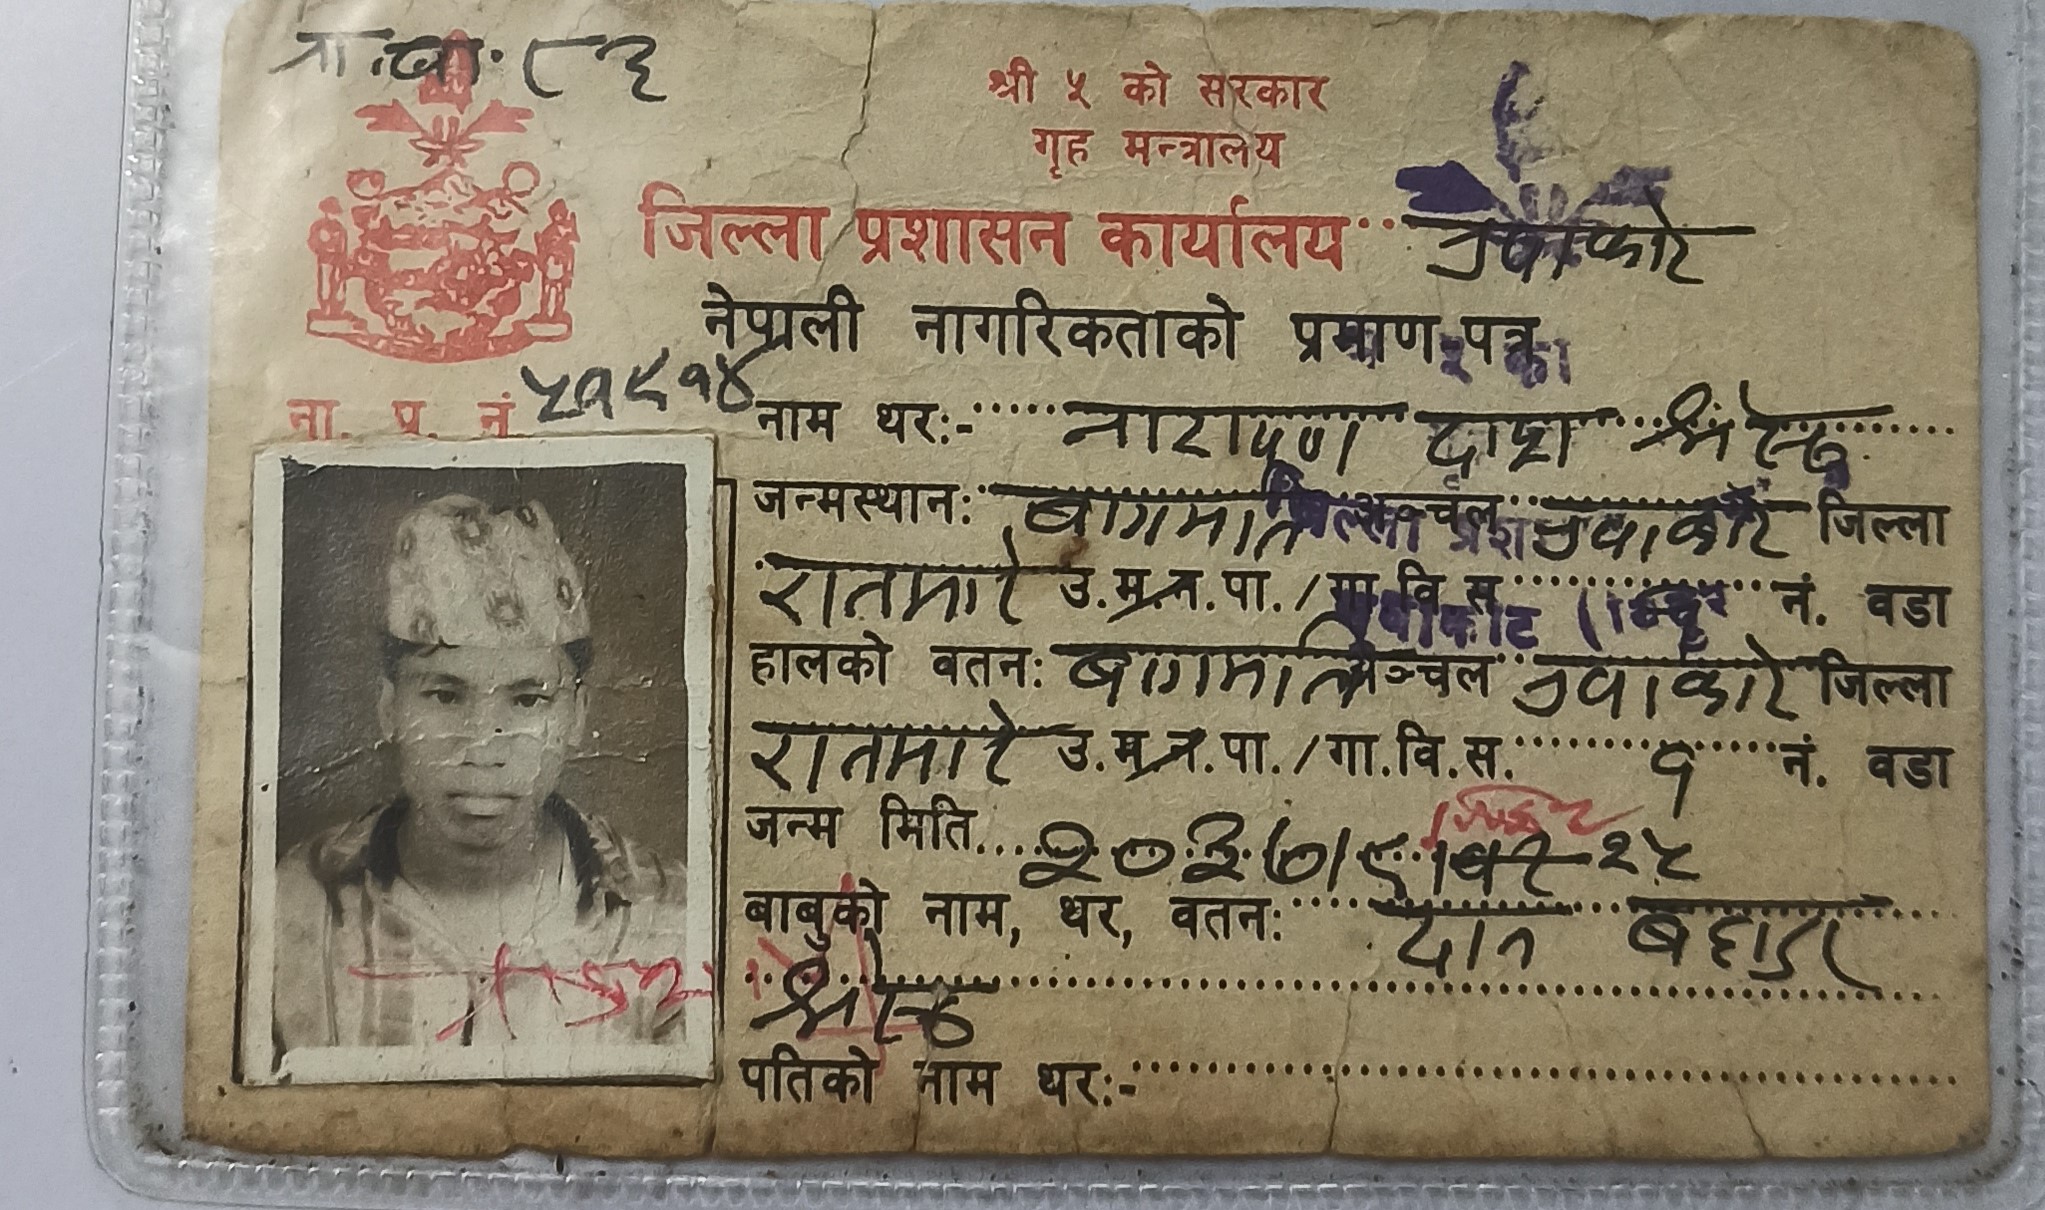 श्री ५ को सरकार
गृह मन्त्रालय
जिल्ला प्रशासन कार्यालय नुवाकोट
नेपाली नागरिकताको प्रमाण पत्र
ना. प्र. नं. ५१९१४
नाम थर:- नारायण दास श्रेष्ठ
जन्मस्थान: बागमति अञ्चल नुवाकोट जिल्ला
रातमाटे उ.म.न.पा./गा.वि.स. नं. वडा
हालको वतन: बागमति अञ्चल नुवाकोट जिल्ला
रातमाटे उ.म.न.पा./गा.वि.स. १ नं. वडा
जन्म मिति २०३७।९।
बाबुको नाम, थर, वतन: दान बहादुर
श्रेष्ठ
पतिको नाम थर:-